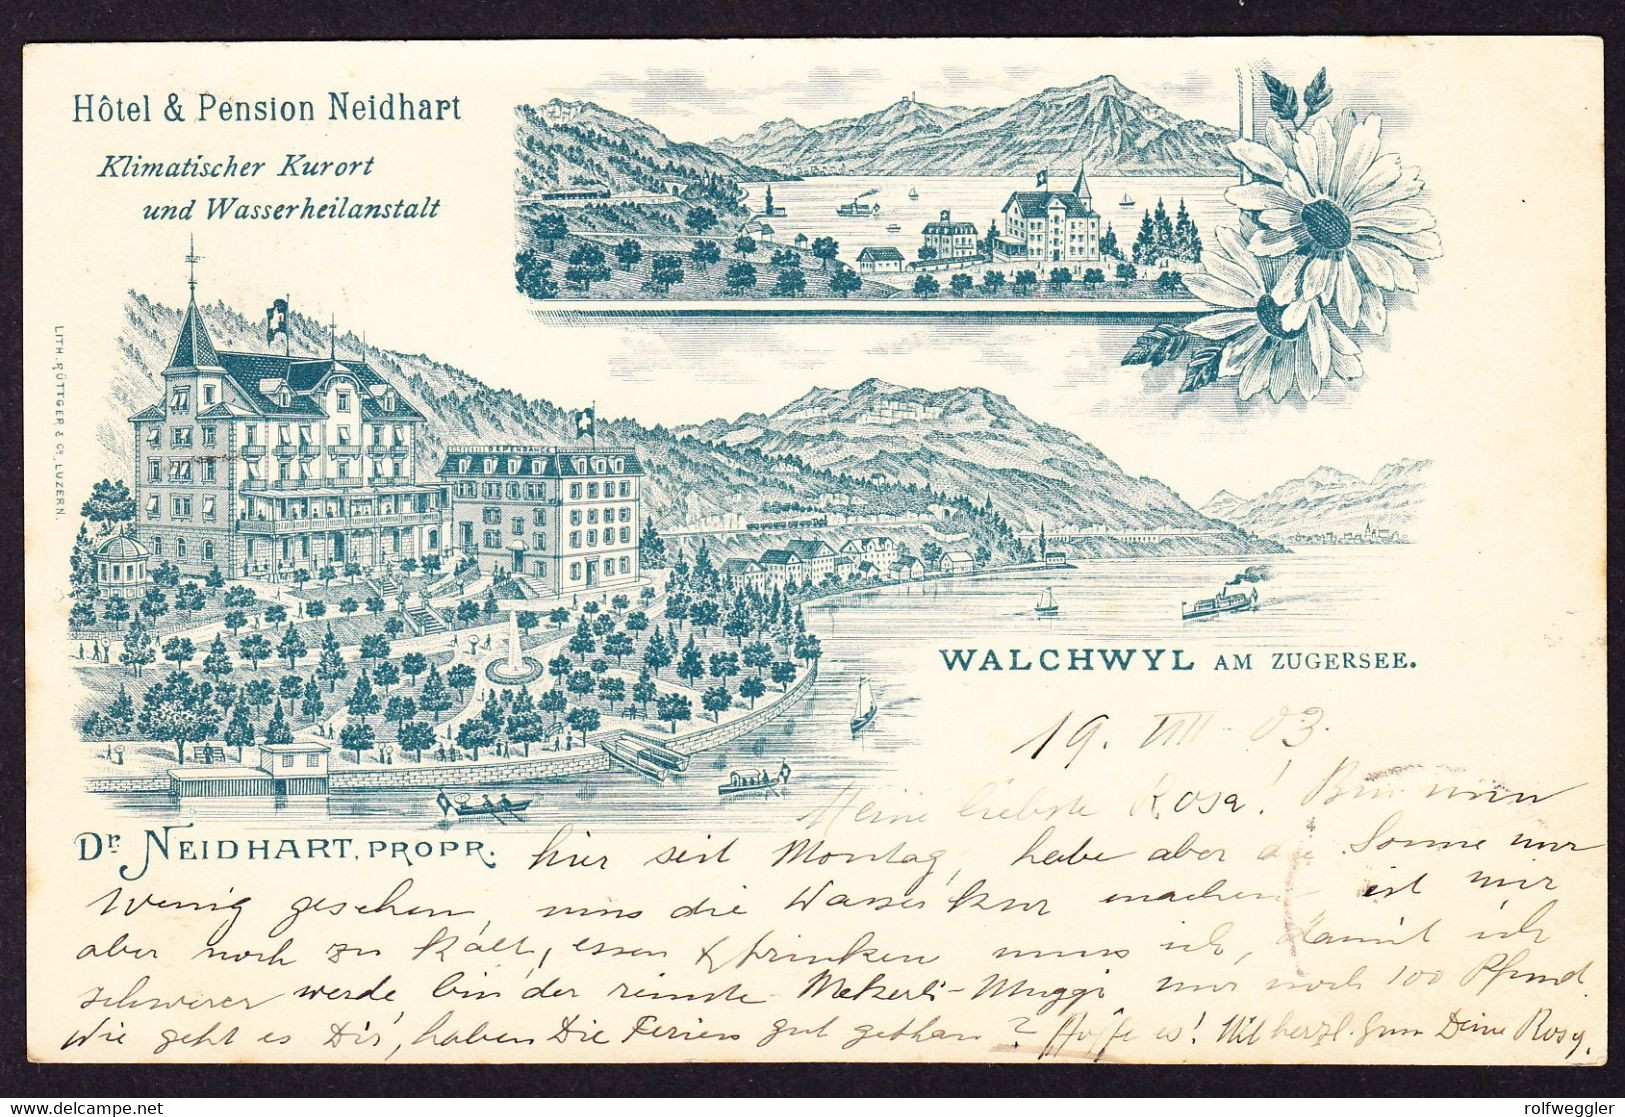 Hôtel & Pension Neidhart
Klimatischer Kurort
und Wasserheilanstalt
LITH. RÜTTGER & Cº, LUZERN.
DEPENDANCE
WALCHWYL AM ZUGERSEE.
19. VIII. 03.
Meine liebste Rosa! Bin nun
Dr. NEIDHART, PROPR.
hier seit Montag, habe aber die Sonne nur
wenig gesehen, uns die Wasserkur machen ist mir
aber noch zu kalt, essen & trinken muss ich, damit ich
schwerer werde bin der reinste Mekerli-Muggi nur noch 100 Pfund.
Wie geht es Dir, haben Die Ferien gut gethan? Hoffe es! Mit herzl. Deine Rosy.
rolfweggler
delcampe.net